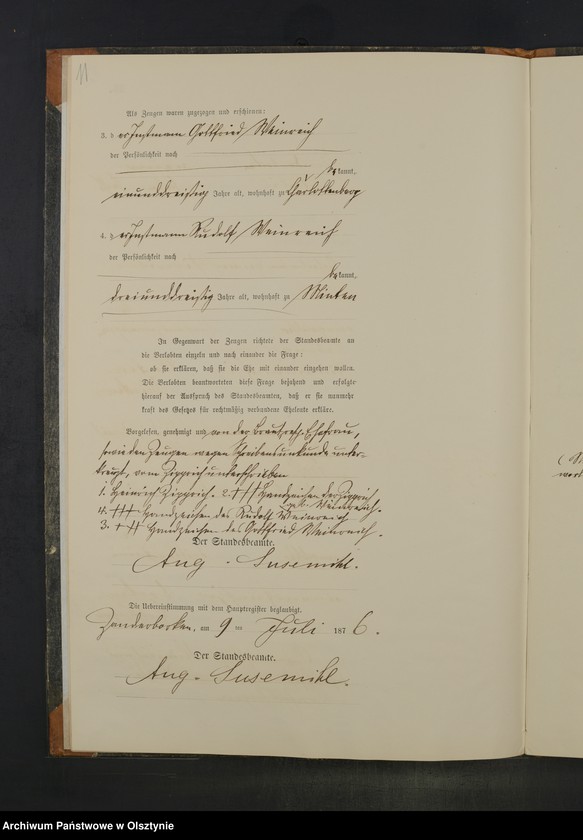 11
Als Zeugen waren zugezogen und erschienen:
3. der Instmann Gottfried Weinreich
der Persönlichkeit nach
bekannt,
einunddreißig Jahre alt, wohnhaft zu Charlottenberg
4. der Instmann Rudolf Weinreich
der Persönlichkeit nach
bekannt,
dreiunddreißig Jahre alt, wohnhaft zu Minten
In Gegenwart der Zeugen richtete der Standesbeamte an
die Verlobten einzeln und nach einander die Frage:
ob sie erklären, daß sie die Ehe mit einander eingehen wollen.
Die Verlobten beantworteten diese Frage bejahend und erfolgte
hierauf der Ausspruch des Standesbeamten, daß er sie nunmehr
kraft des Gesetzes für rechtmäßig verbundene Eheleute erkläre.
Vorgelesen, genehmigt und von der Braut resp. Ehefrau,
sowie den Zeugen wegen Schreibensunkunde unter-
kreuzt, vom Zipprich unterschrieben
1. Heinrich Zipprich. 2. +++ Handzeichen der Zipprich
geb. Weinreich.
4. +++ Handzeichen des Rudolf Weinreich
3. +++ Handzeichen des Gottfried Weinreich.
Der Standesbeamte.
Aug. Susemihl.
Die Uebereinstimmung mit dem Hauptregister beglaubigt.
Zanderborken, am 9 ten Juli 1876.
Der Standesbeamte.
Aug. Susemihl.
Archiwum Państwowe w Olsztynie